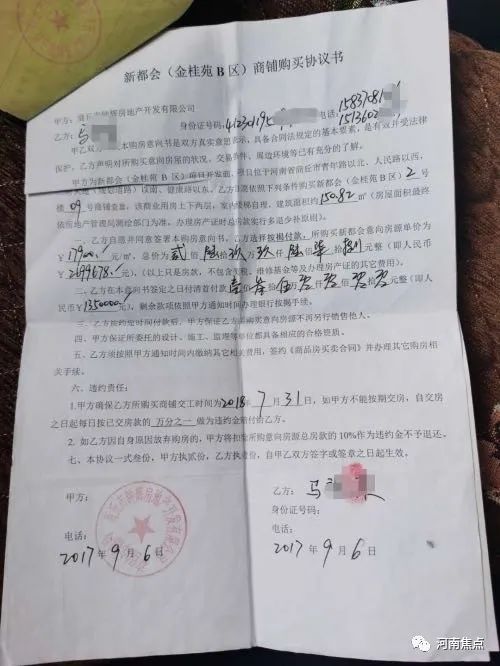 新都会（金桂苑B区）商铺购买协议书
甲方：商丘市 房地产开发有限公司
乙方：马 身份证号码:412301195 电话:15837081
1513602
甲乙双方 本购房意向书是双方真实意思表示，具备合同法规定的基本要素，是有效并受法律
保护。乙方声明对所购买意向房屋的状况、交易条件、周边环境等已有充分的了解。
甲方为新都会（金桂苑B区）项目开发商，项目位于河南省商丘市青年路以北、人民路以西、
以南、健康路以东。乙方自愿依照下列条件购买新都会（金桂苑B区）2号
楼09号商铺壹套。该商业用房上下两层，室内楼梯自理，建筑面积约150.82㎡（房屋面积最终
依房地产管理局测绘部门为准，办理房产证时总房款实行多退少补原则）。
一、乙方自愿并同意签署本购房意向书，乙方选择按揭付款，所购买新都会意向房源单价为
￥17900元/㎡，总价为贰佰陆拾玖万玖仟陆佰柒拾捌元整（即人民币
￥2699678元）。（以上只是房款，不包含契税、维修基金等及办理房产证的其它费用）。
二、乙方在本意向书签定之日付清首付款壹佰叁拾伍万零仟零佰零拾零元整（即人
民币￥1350000元），剩余款项依照甲方通知时间办理银行按揭手续。
三、乙方按约定时间付款后，甲方保证乙方所购买意向房源不再另行销售他人。
四、甲方保证所委托的设计、施工、监理等单位都具备相应的合格资质。
五、乙方须按照甲方通知时间内缴纳其它相关费用，签约《商品房买卖合同》并办理其它购房相
关手续。
六、违约责任：
1.甲方确保乙方所购买商铺交工时间为2018年7月31日，如甲方不能按期交房，自交房
之日起每日按已交房款的 万分之一 做为违约金赔付给乙方。
2. 如乙方因自身原因放弃购房的，甲方将扣除所购意向房源总房款的10%作为违约金不予退还。
七、本协议一式叁份，甲方执贰份，乙方执壹份，自甲乙双方签字或签章之日起生效。
甲方：
电话：
2017年9月6日
乙方：马
身份证号码：
电话：
2017年9月6日
河南焦点